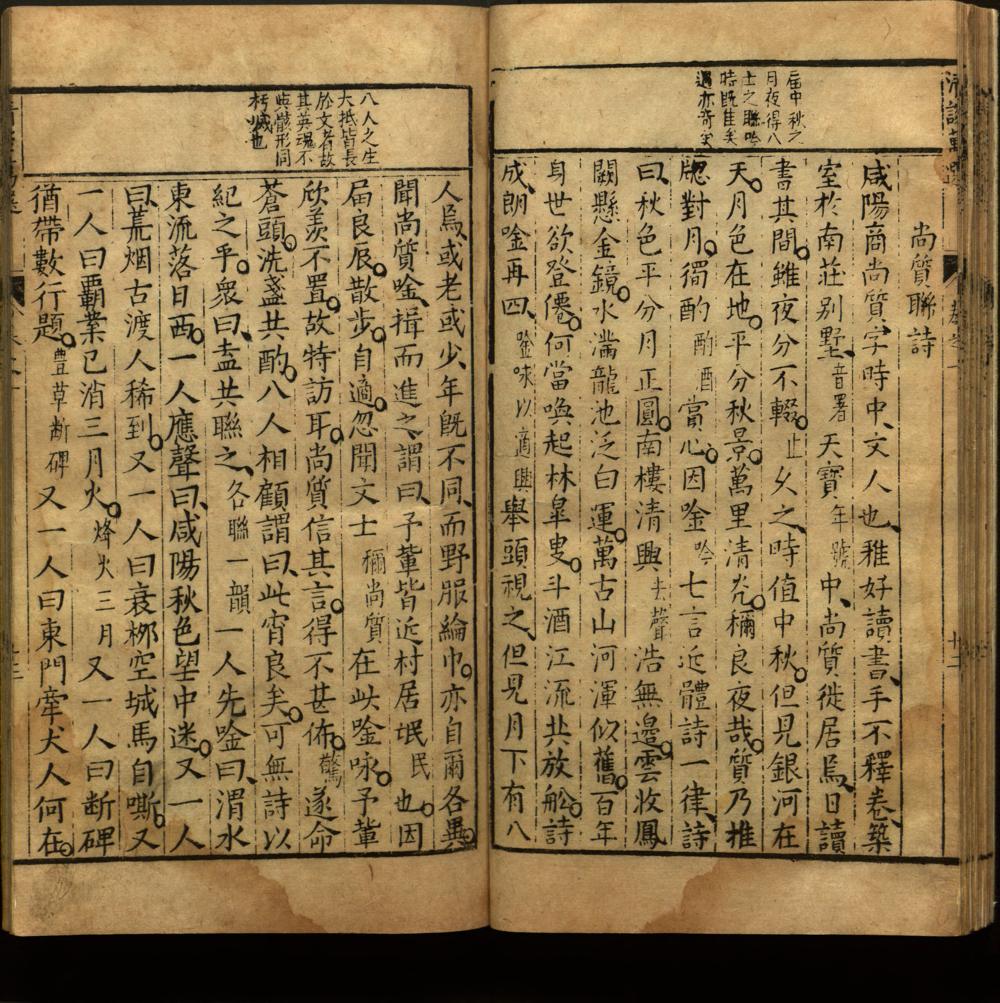 尚質聯詩
咸陽商尚質字時中、文人也、雅好讀書、手不釋卷、築
室於南莊别墅、音署天寶年號中、尚質徙居焉、日讀
書其間。雖夜分不輟。止乆之、時值中秋。但見銀河在
天。月色在地。平分秋景。萬里清光。稱良夜哉。質乃推
牕對月。獨酌酌酒賞心。因唫吟七言近體詩一律、詩
曰、秋色平分月正圓。南樓清興去聲浩無邊。雲收鳳
闕懸金鏡。水滿龍池泛白蓮。萬古山河渾似舊。百年
身世欲登僊。何當喚起林皐叟。斗酒江流共放舩。詩
成、朗唫再四、唫咏以適興舉頭視之、但見月下有八
届中秋之
月夜得八
士之聯唫
時既佳矣
遇亦奇矣
人焉、或老或少、年既不同、而野服綸巾。亦自爾各異。
聞尚質唫、揖而進之、謂曰、予輩皆近村居氓民也。因
届良辰。散步。自適。忽聞文士稱尚質在此唫咏。予輩
欣羨不置。故特訪耳。尚質信其言。得不甚佈。驚遂命
蒼頭。洗盞共酌。八人相顧謂曰、此宵良矣。可無詩以
紀之乎。衆曰、盍共聯之、各聯一韻一人先唫曰、渭水
東流落日西。一人應聲曰、咸陽秋色望中迷。又一人
曰、荒烟古渡人稀到。又一人曰衰柳空城馬自嘶。又
一人曰霸業已消三月火。烽火三月又一人曰断碑
猶帶數行題。豊草断碑又一人曰東門牽犬人何在。
八人之生
大抵皆長
於文者故
其英魂不
與骸形同
朽滅也